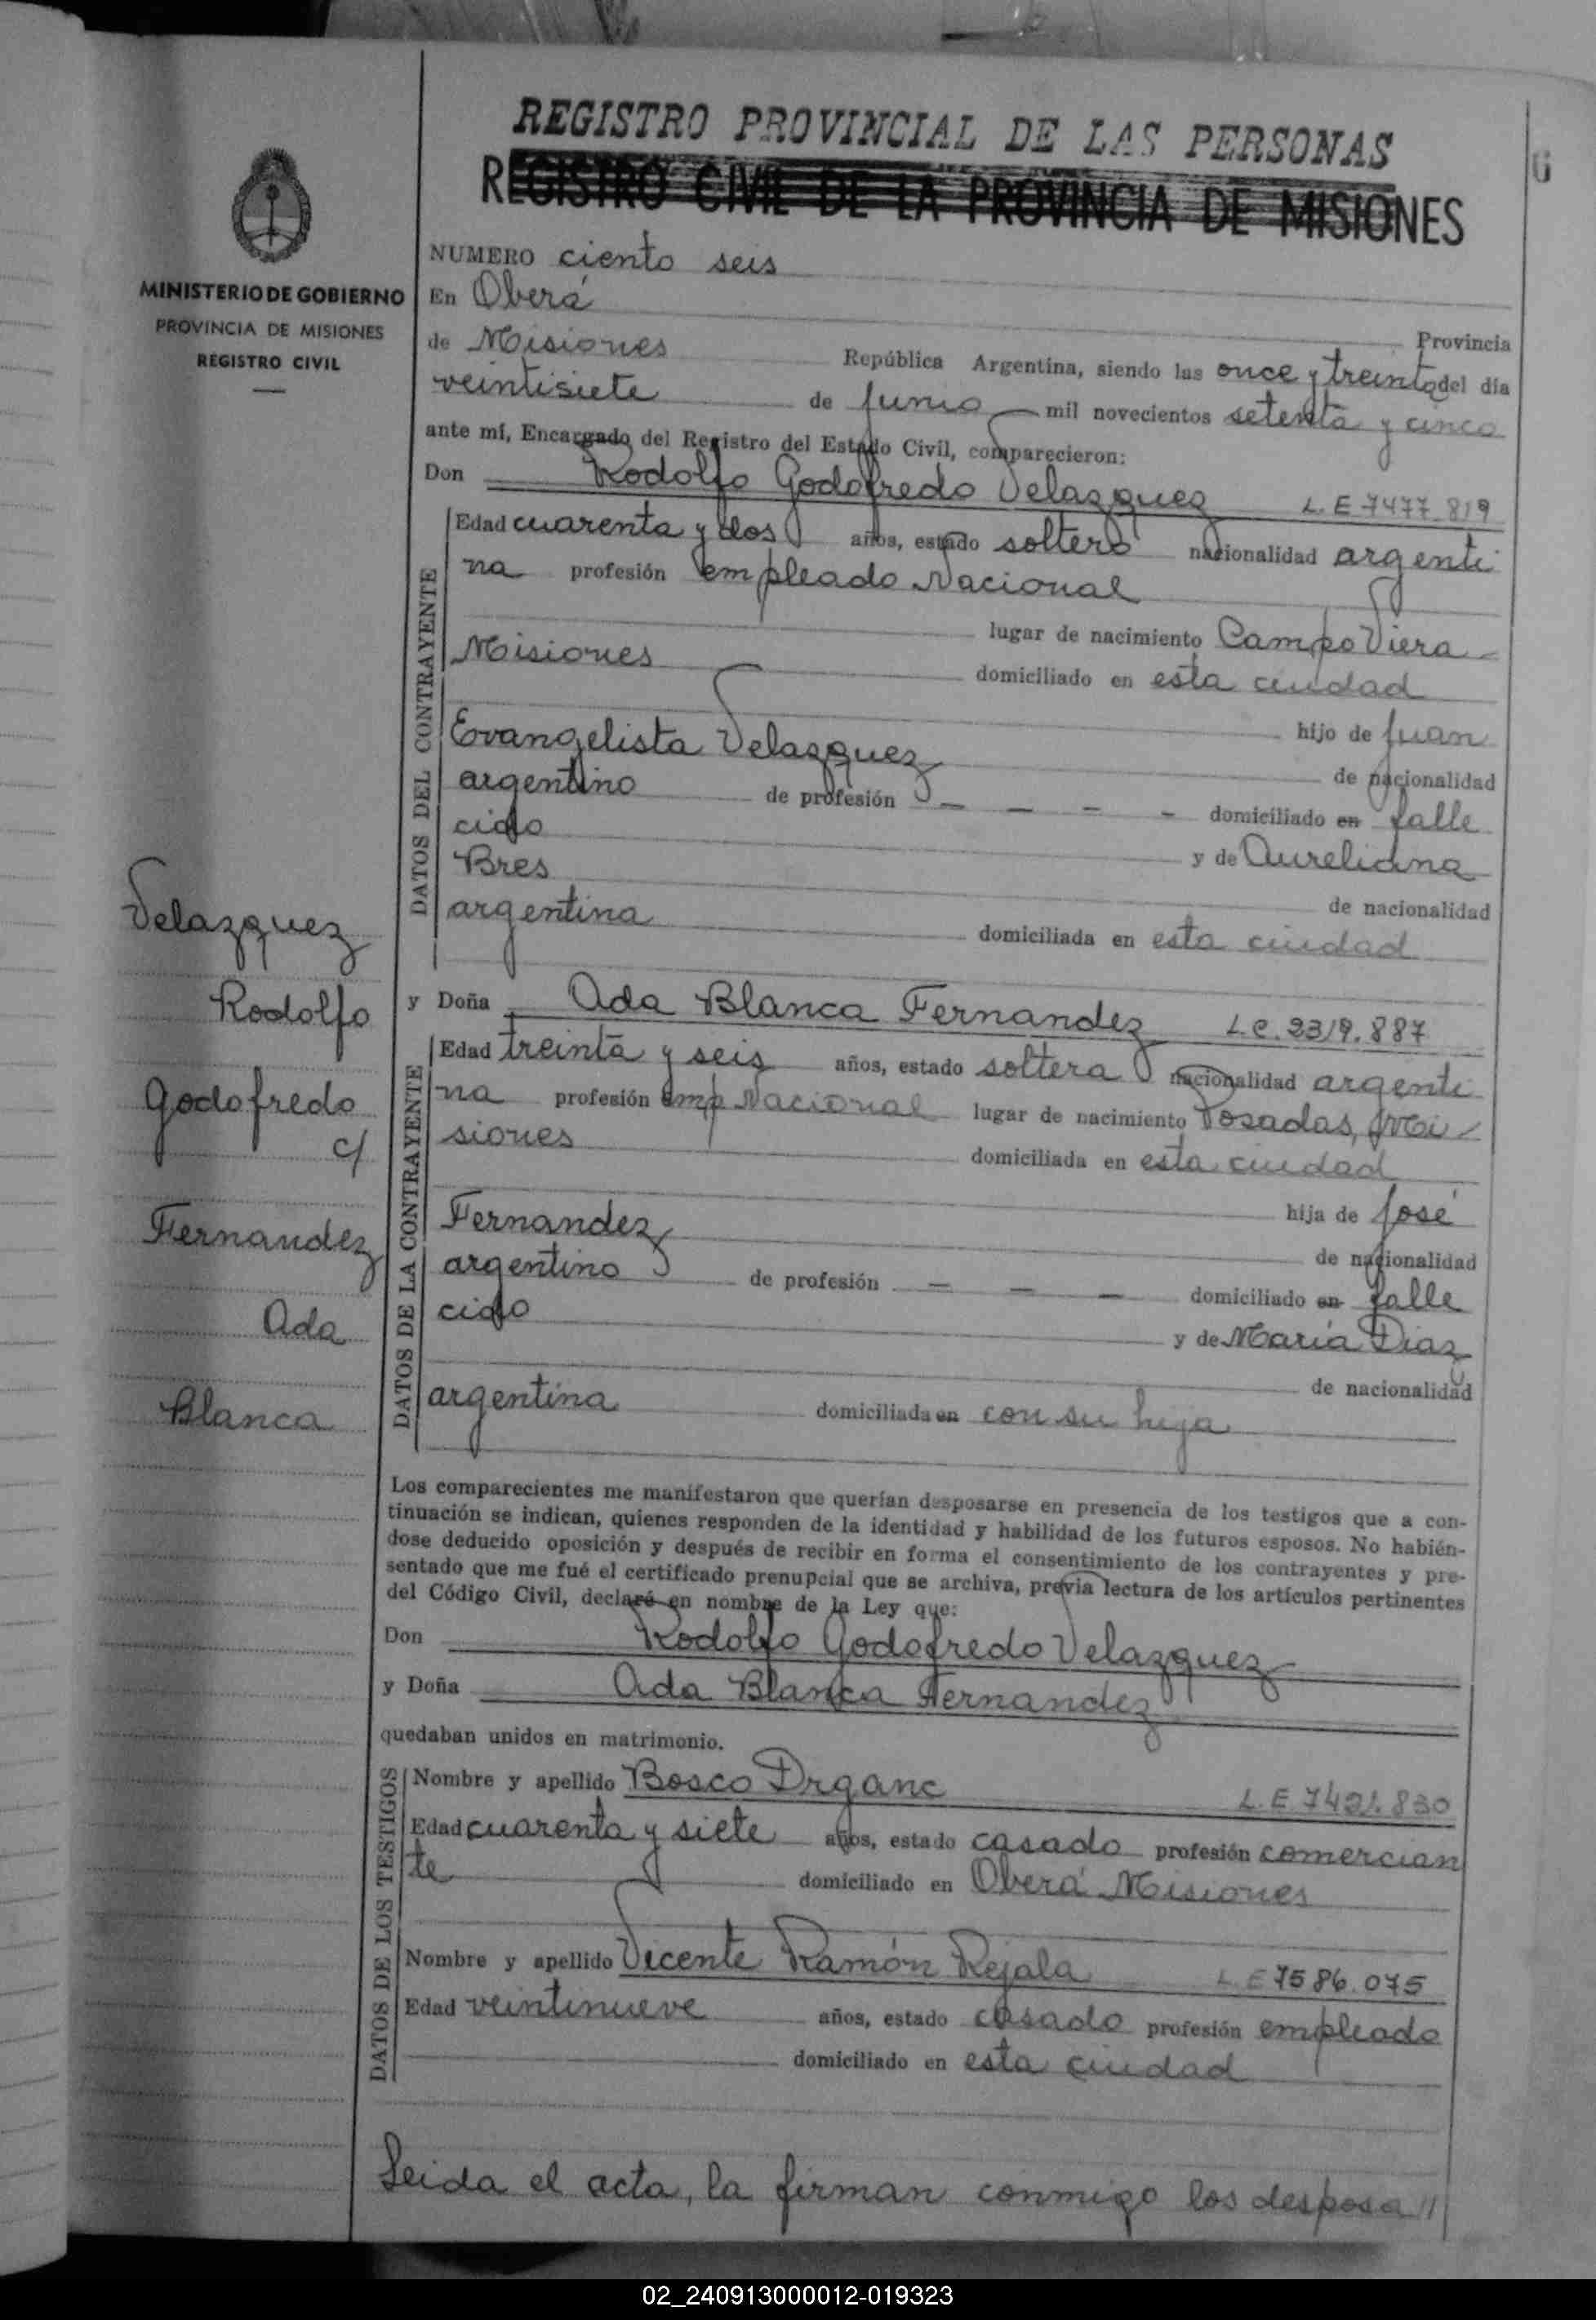 REGISTRO PROVINCIAL DE LAS PERSONAS
REGISTRO CIVIL DE LA PROVINCIA DE MISIONES
6
MINISTERIO DE GOBIERNO
PROVINCIA DE MISIONES
REGISTRO CIVIL
NUMERO ciento seis
En Oberá Provincia
de Misiones República Argentina, siendo las once y treinta del día
veintisiete de Junio mil novecientos setenta y cinco
ante mí, Encargado del Registro del Estado Civil, comparecieron:
Don Rodolfo Godofredo Velazquez L.E 7477.819
DATOS DEL CONTRAYENTE
Edad cuarenta y dos años, estado soltero nacionalidad argenti
na profesión empleado Nacional
lugar de nacimiento Campo Viera
Misiones domiciliado en esta ciudad
hijo de Juan
Evangelista Velazquez de nacionalidad
argentino de profesión – – – – domiciliado en falle
cido y de Aureliana
Bres de nacionalidad
argentina domiciliada en esta ciudad
y Doña Ada Blanca Fernandez L.C. 2319.887
DATOS DE LA CONTRAYENTE
Edad treinta y seis años, estado soltera nacionalidad argenti
na profesión emp Nacional lugar de nacimiento Posadas, Mi
siones domiciliada en esta ciudad
hija de José
Fernandez de nacionalidad
argentino de profesión – – – domiciliado en falle
cido y de María Diaz
de nacionalidad
argentina domiciliada en con su hija
Velazquez
Rodolfo
Godofredo
c/
Fernandez
Ada
Blanca
Los comparecientes me manifestaron que querían desposarse en presencia de los testigos que a con-
tinuación se indican, quienes responden de la identidad y habilidad de los futuros esposos. No habién-
dose deducido oposición y después de recibir en forma el consentimiento de los contrayentes y pre-
sentado que me fué el certificado prenupcial que se archiva, previa lectura de los artículos pertinentes
del Código Civil, declaré en nombre de la Ley que:
Don Rodolfo Godofredo Velazquez
y Doña Ada Blanca Fernandez
quedaban unidos en matrimonio.
DATOS DE LOS TESTIGOS
Nombre y apellido Bosco Drganc L.E 7421.830
Edad cuarenta y siete años, estado casado profesión comercian
te domiciliado en Oberá Misiones
Nombre y apellido Vicente Ramón Rejala L.E 7586.075
Edad veintinueve años, estado casado profesión empleado
domiciliado en esta ciudad
Leida el acta, la firman conmigo los desposa//
02_240913000012-019323